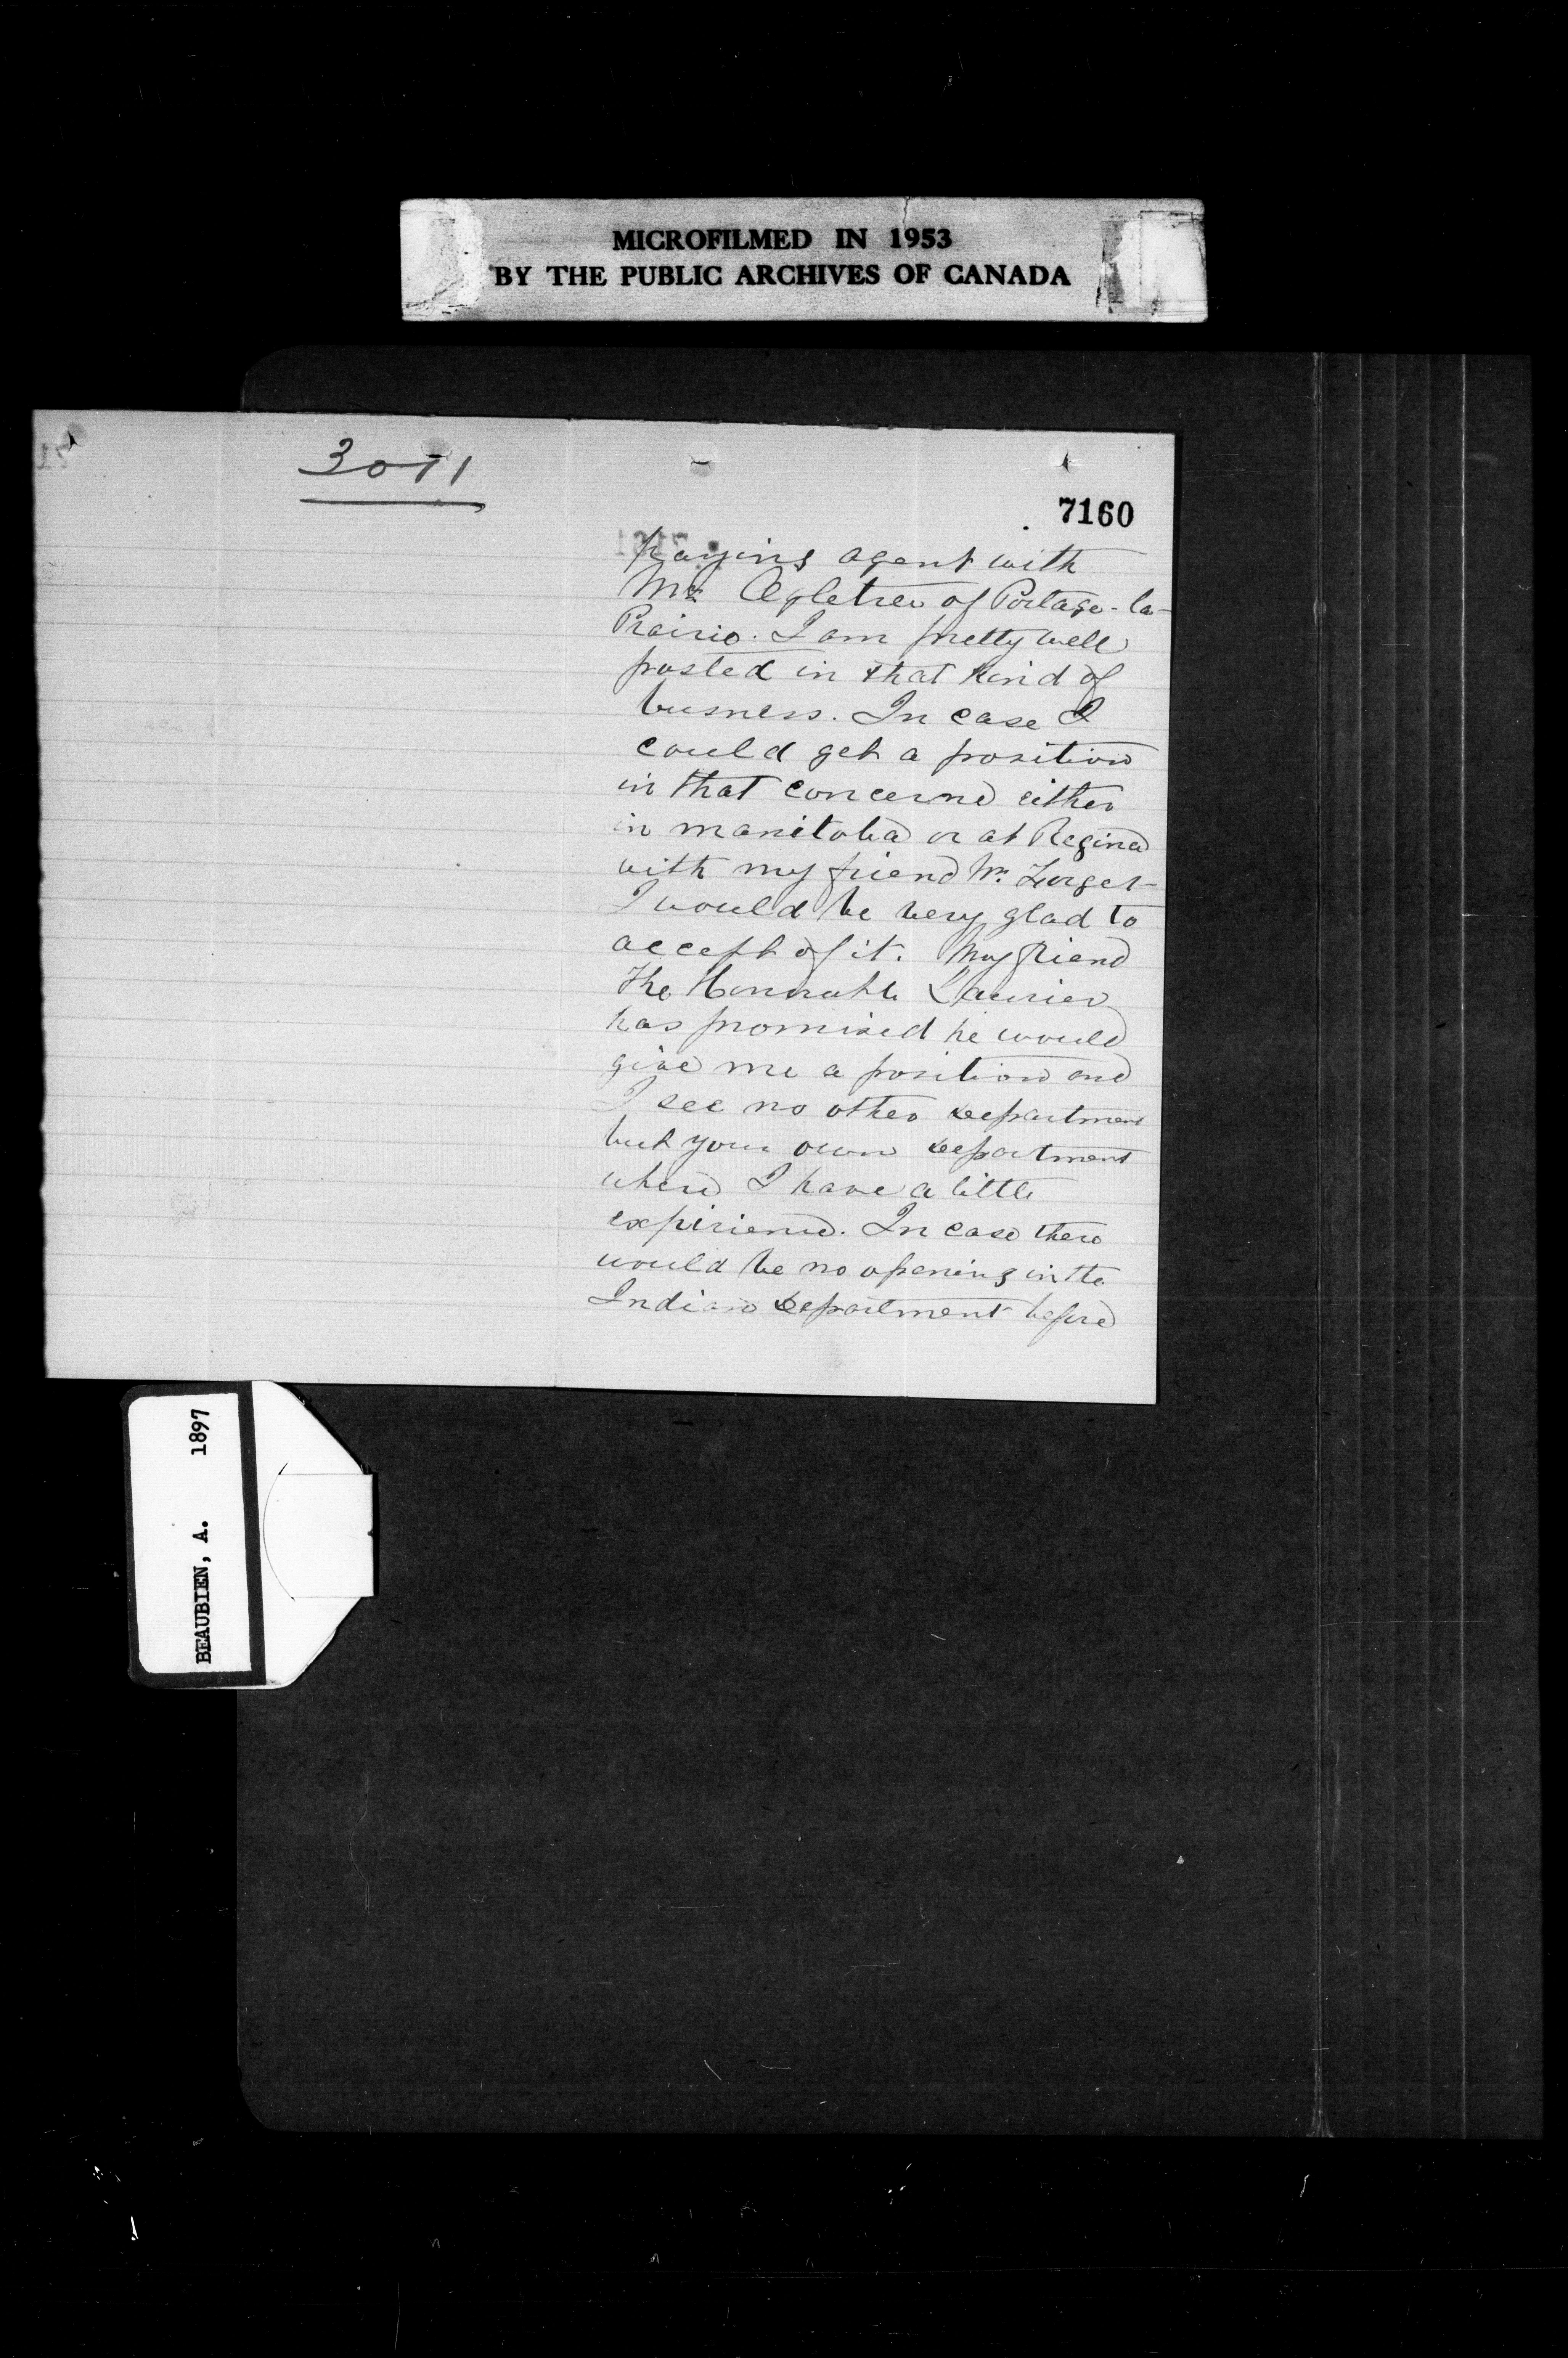 MICROFILMED IN 1953
BY THE PUBLIC ARCHIVES OF CANADA
3071
7160
paying agent with
Mr Ogletree of Portage-la-
Prairie. I am pretty well
posted in that kind of
busness. In case I
could get a position
in that concerne either
in manitoba or at Regina
with my friend Mr. Forget
I would be very glad to
accept of it. My friend
The Honorable Laurier
has promised he would
give me a position and
I see no other department
but your own department
where I have a little
expirience. In case there
would be no opening in the
Indian department before
BEAUBIEN, A. 1897